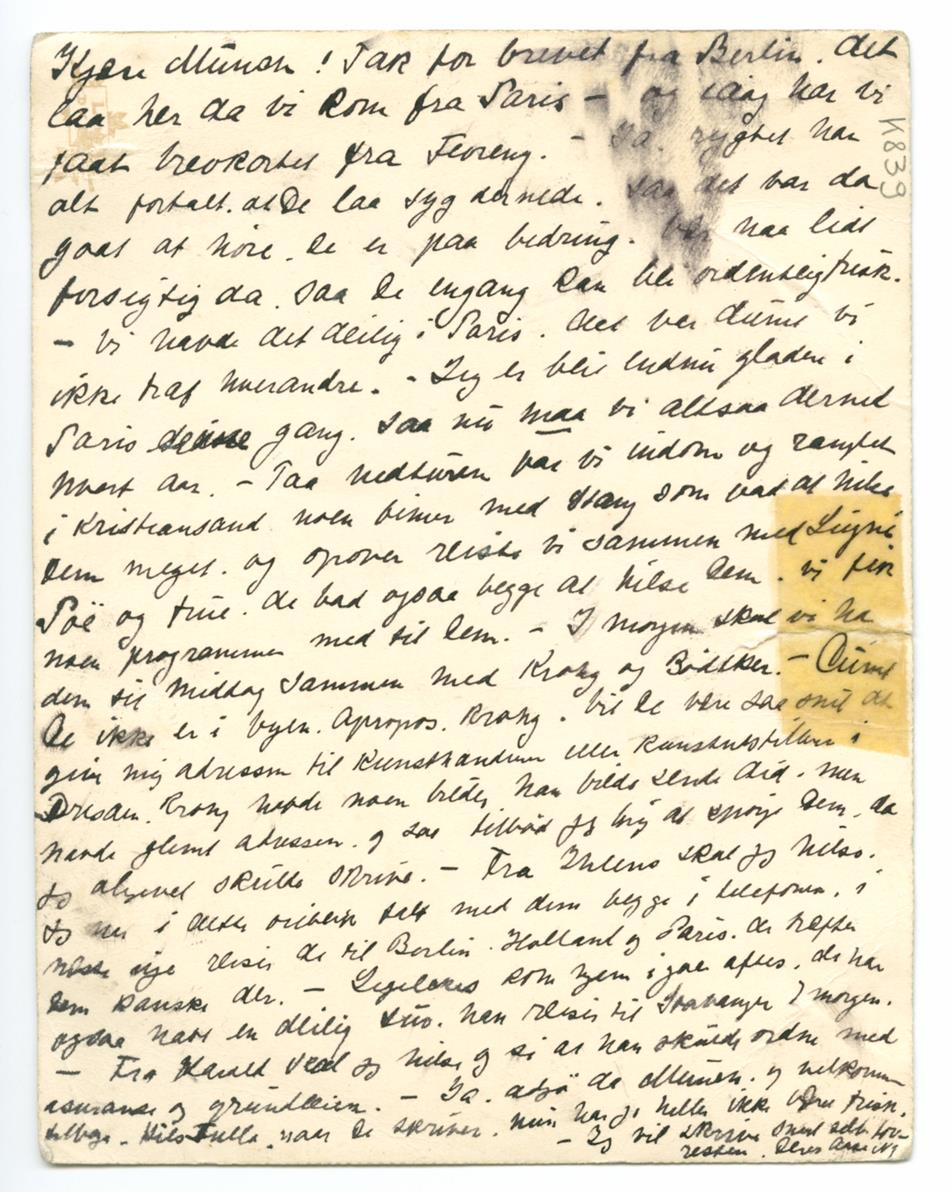 Kjære Munch! Tak for brevet fra Berlin. Det
laa her da vi kom fra Paris – og idag har vi
faat brevkortet fra Florenz. – Ja. rygtet har
alt fortalt. at De laa syg dernede. saa det var da
godt at høre. De er paa bedring. Vær naa lidt
forsigtig da. saa De engang kan bli ordentlig frisk.
– Vi havde det deilig i Paris. Det var dumt vi
ikke traf hverandre. – Jeg er blit endnu gladere i
Paris denne gang. saa nu maa vi altsaa derned
hvert aar. – Paa nedturen var vi indom og ranglet
i Kristiansand noen timer med Stang som bad at hilse
Dem meget. og opover reiste vi sammen med Lugné
Poë og frue. de bad ogsaa begge at hilse Dem. vi fik
noen programmer med til Dem. – I morgen skal vi ha
dem til middag sammen med Krohg og Bödtker. – Dumt
De ikke er i byen. Apropos. Krohg. Vil De være saa snil at
give mig adressen til Kunsthandleren eller Kunstutstillere i
Dresden. Krohg havde noen billeder han vilde sende did. men
havde glemt adressen. og saa tilbød jeg mig at spørge Dem. da
jeg alligevel skulde skrive. – Fra Ihlens skal jeg hilse.
Jeg har i dette øieblik talt med dem begge i telefonen. i
næste uge reiser de til Berlin. Holland og Paris. de træffer
Dem kanske der. – kom hjem igaar aftes. de har
ogsaa havt en deilig tur. han reiser til Stavanger i morgen.
– Fra Harald skal jeg hilse og si at han skulde ordne med
asuranse og grundleien. – Ja. adjø da Munch. og velkommen
tilbage. Hils Tulla. naar De skriver. hun har jo heller ikke været frisk.
– Jeg vil skrive snart selv for-
resten. Deres Aase N.
K839